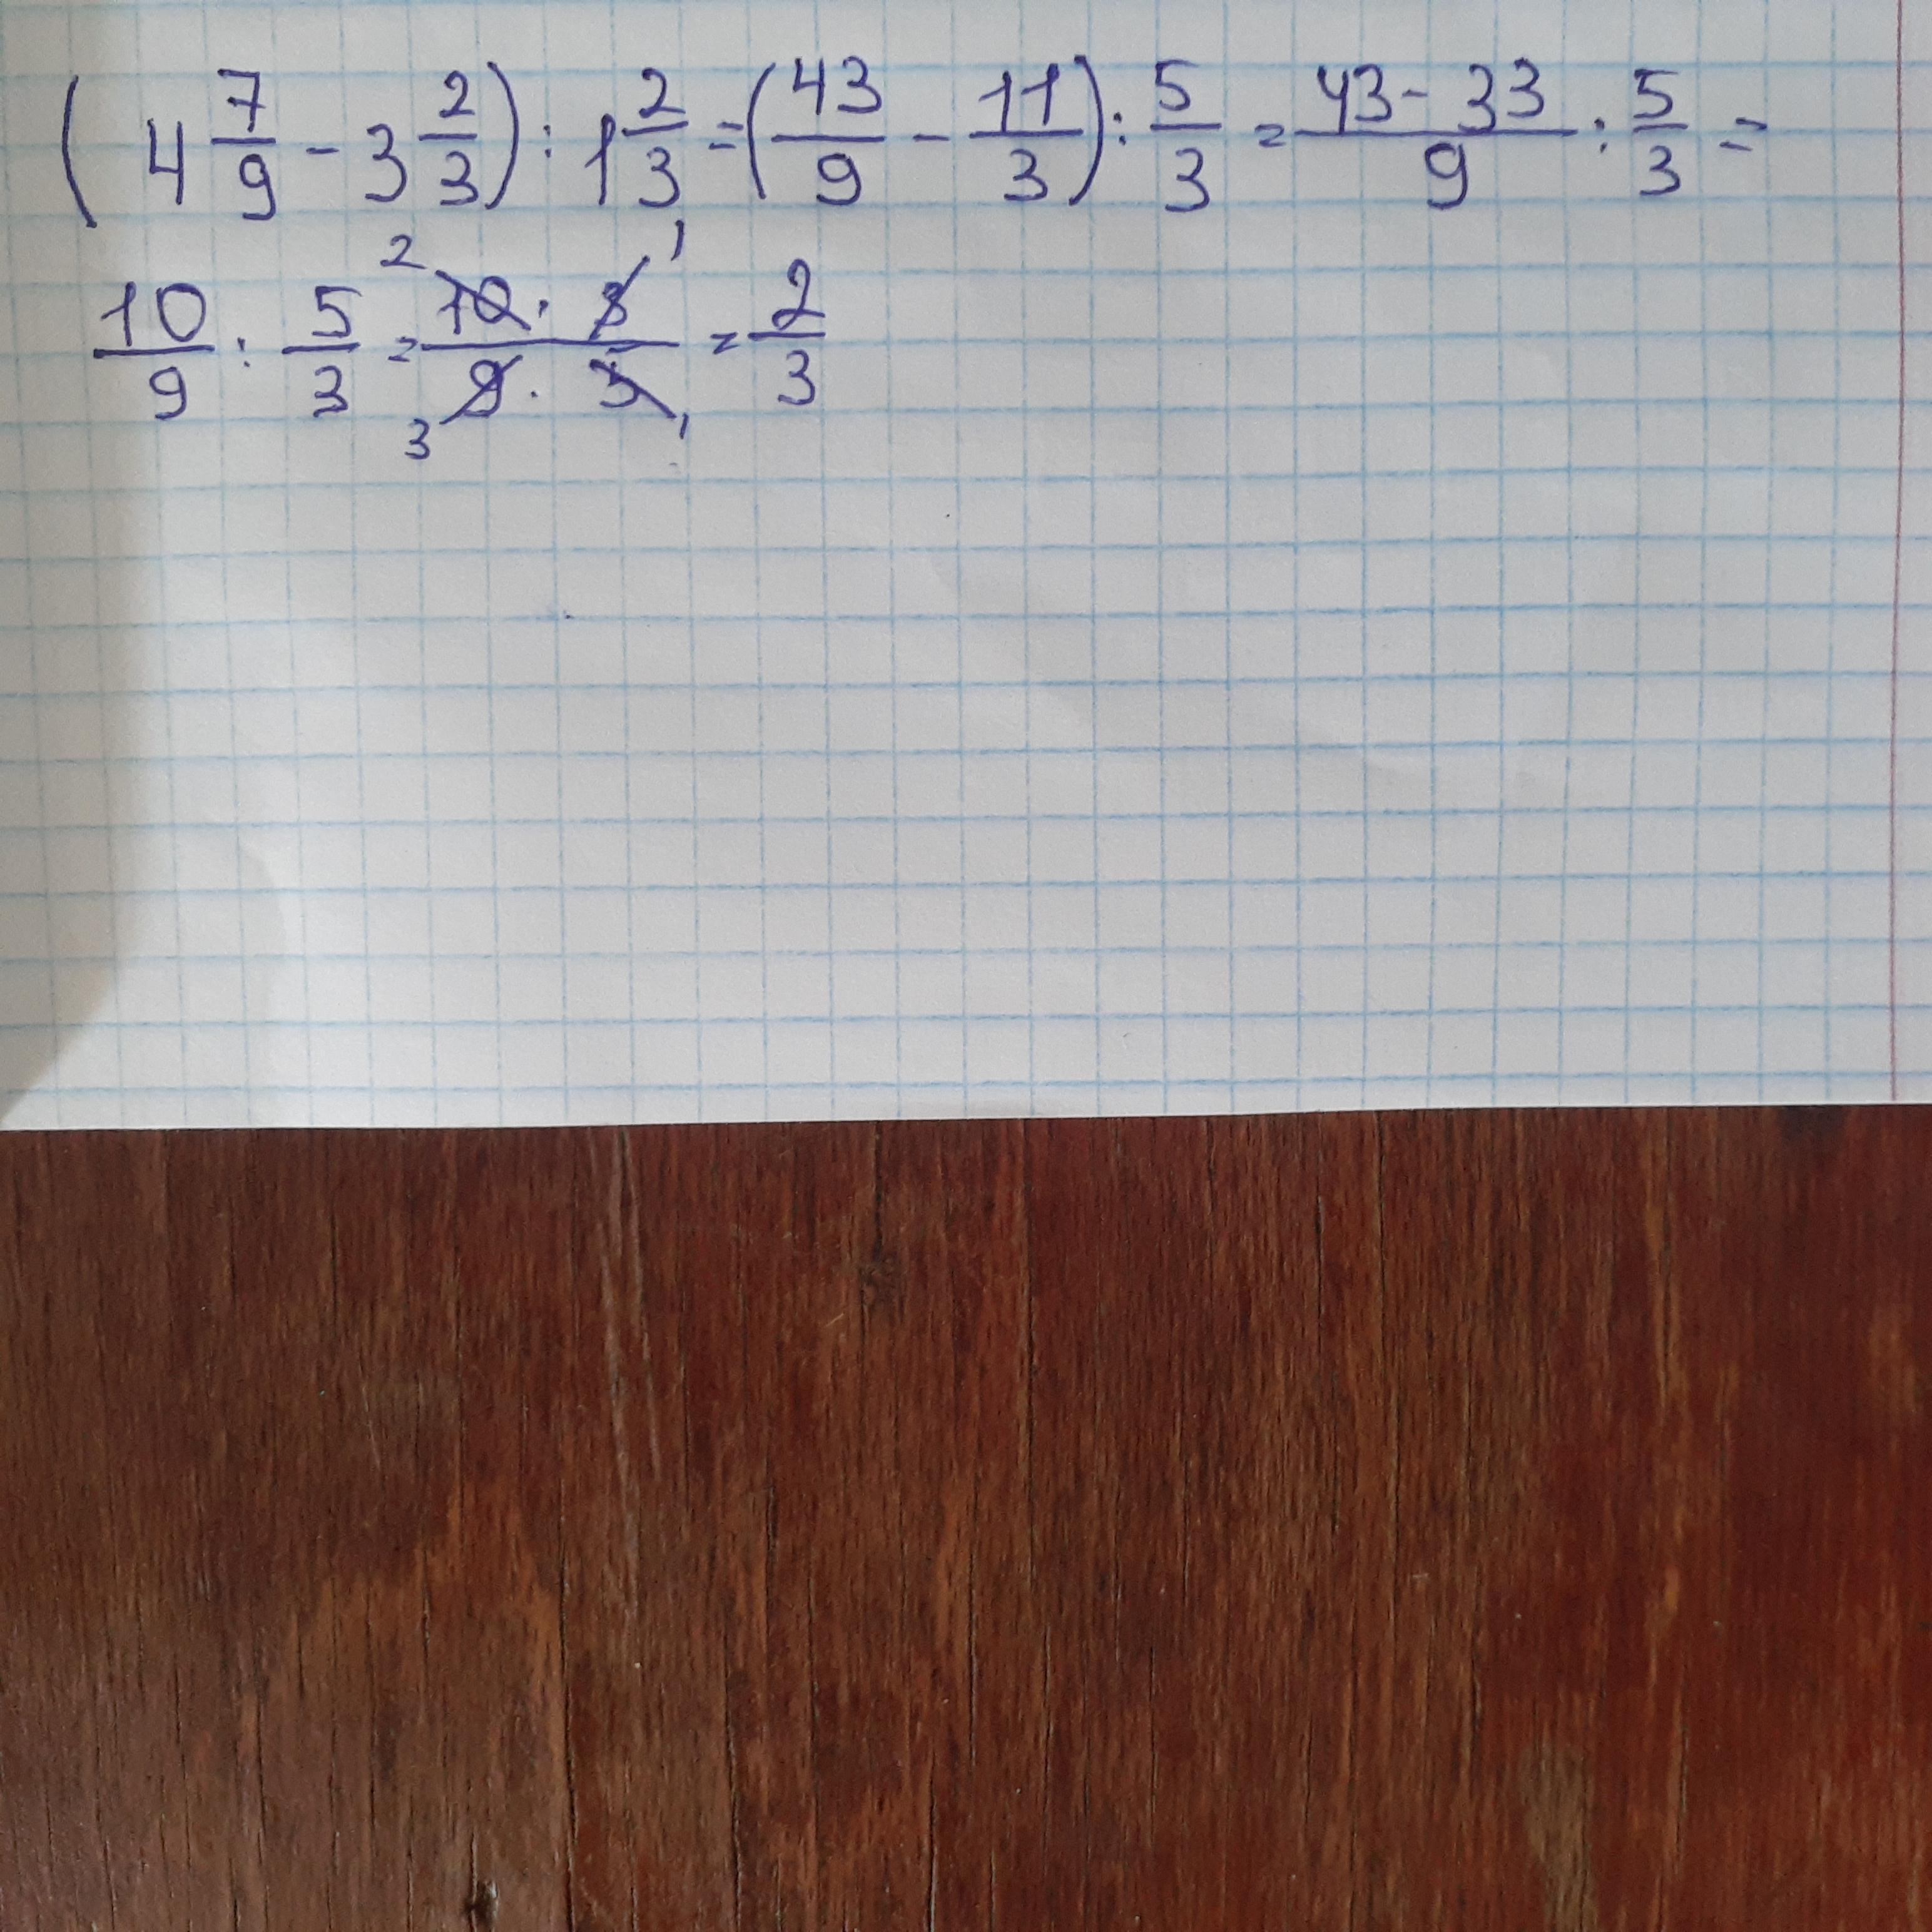 (4 7/9 - 3 2/3) : 1 2/3 = (43/9 - 11/3) : 5/3 = (43 - 33)/9 : 5/3 =
10/9 : 5/3 = (²10 · 3¹)/(₃9 · 5₁) = 2/3